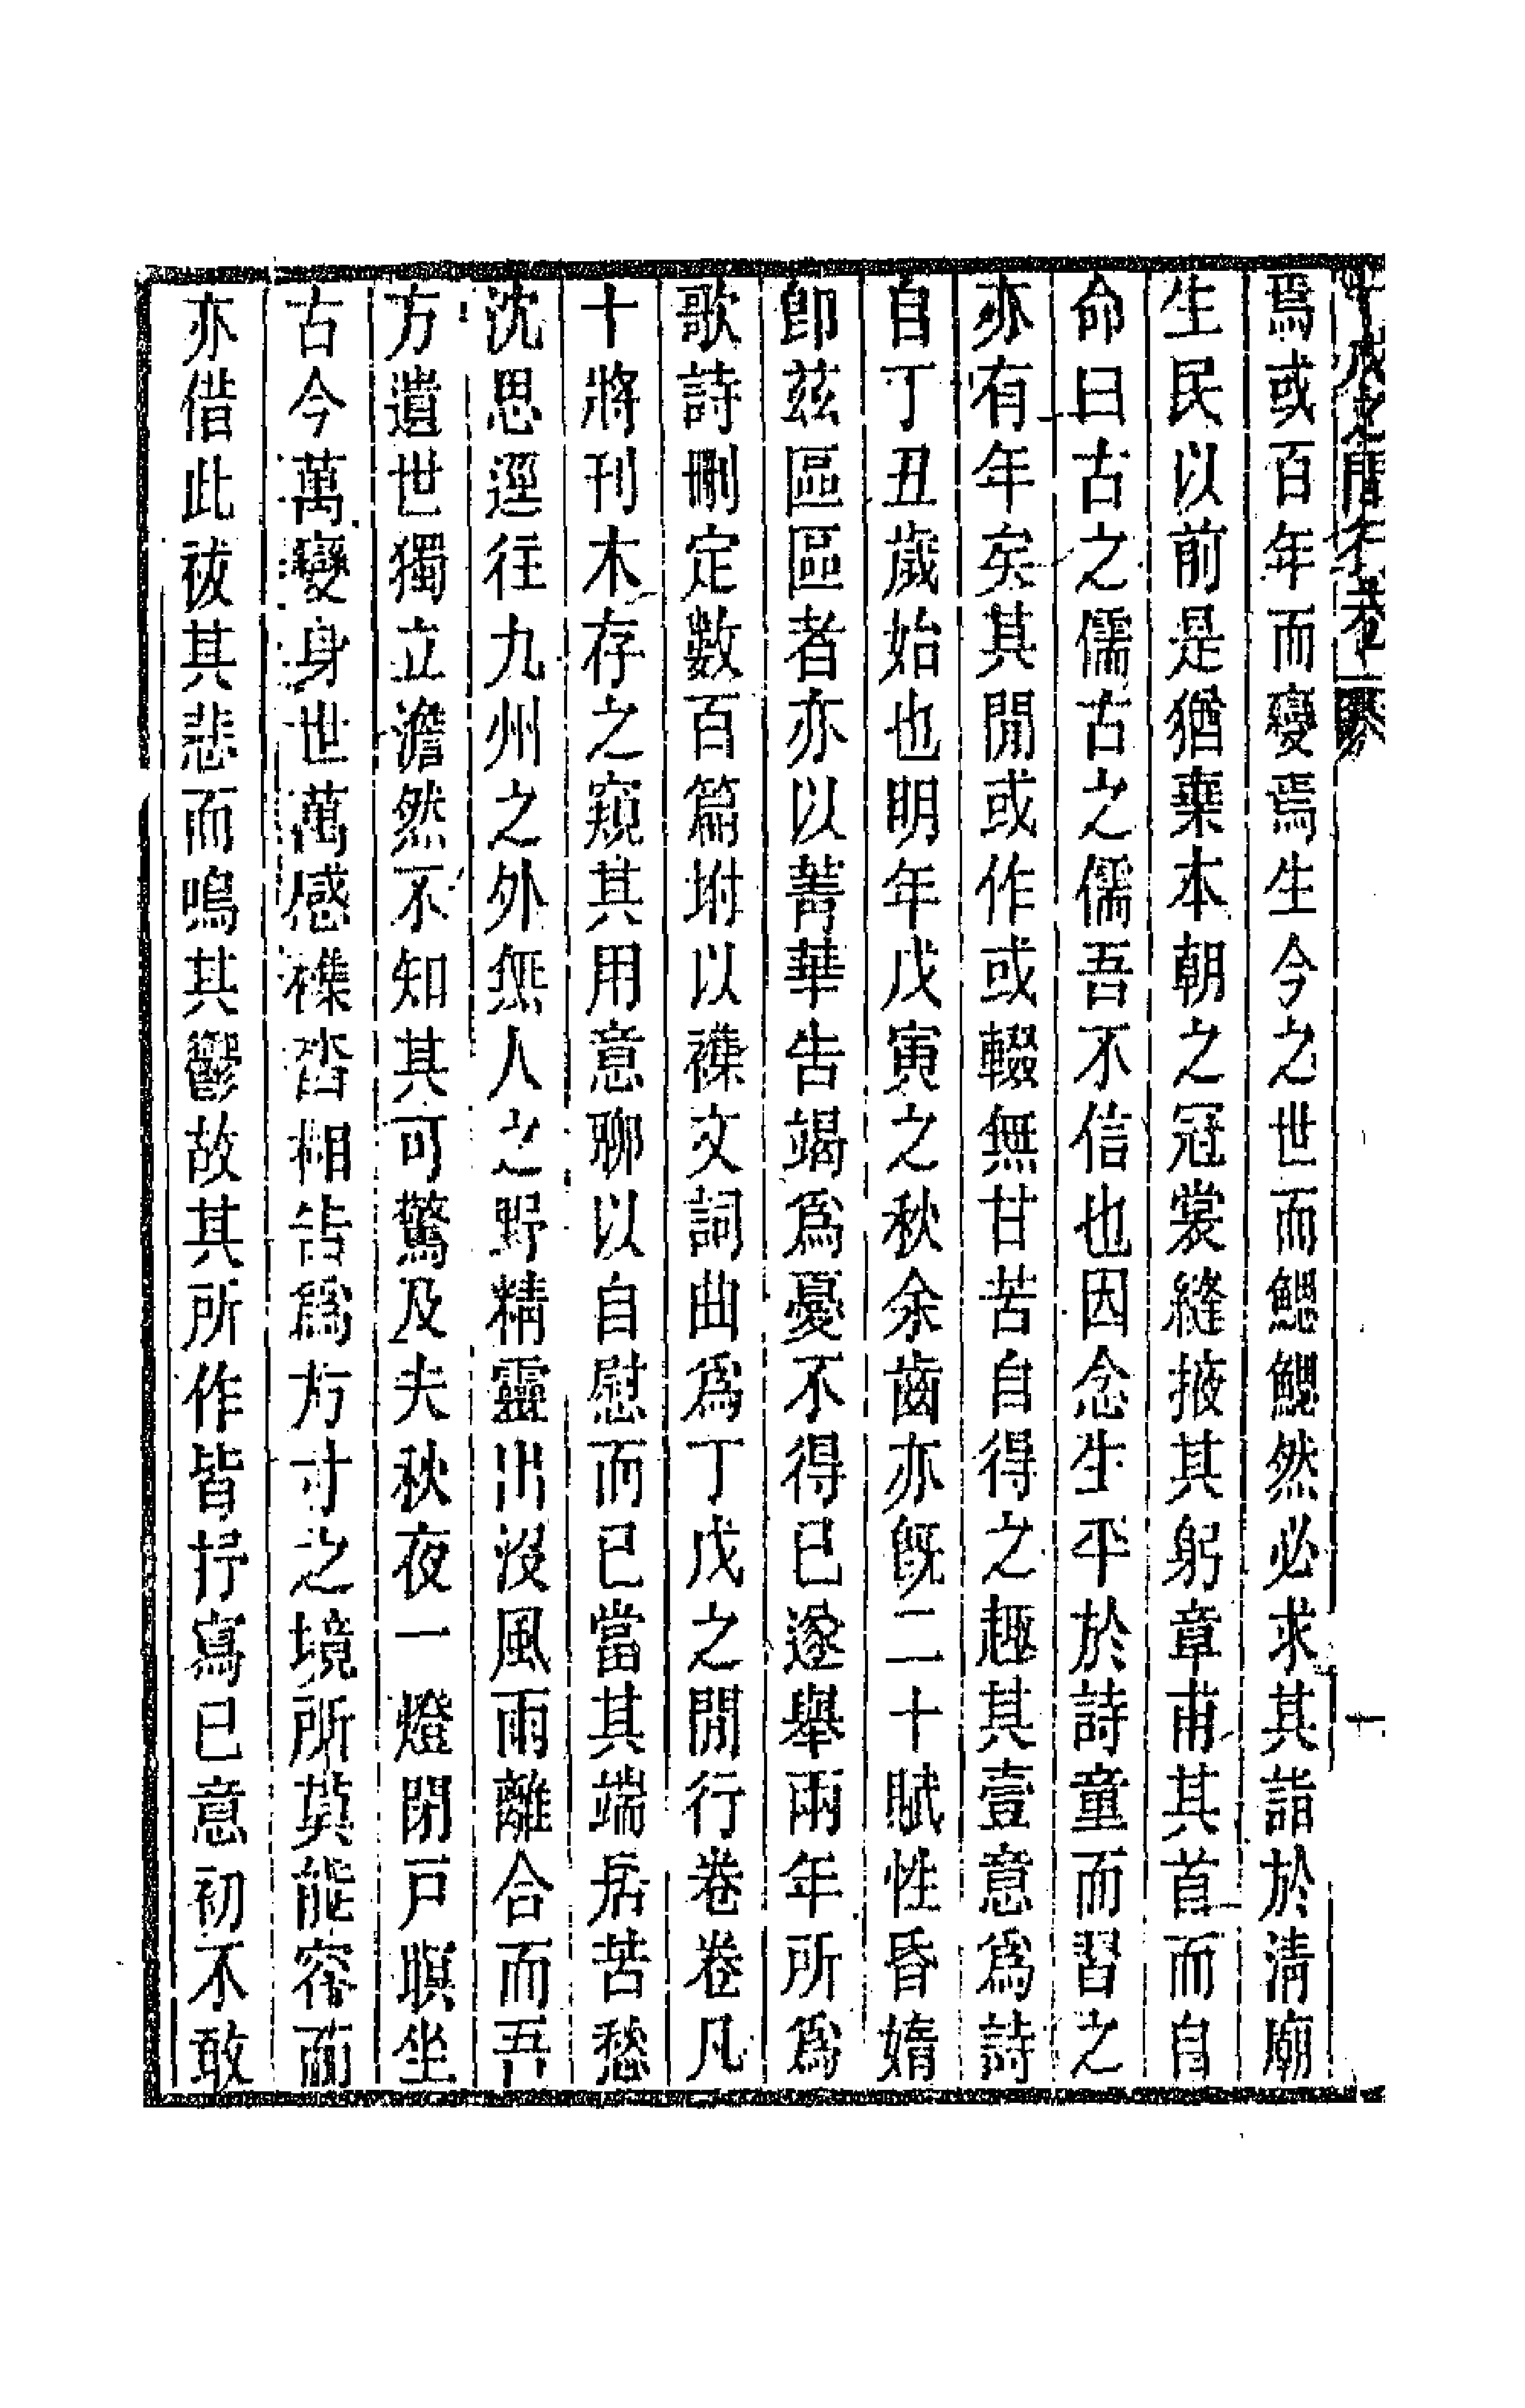 焉或百年而變焉生今之世而鰓鰓然必求其詣於淸廟
生民以前是猶棄本朝之冠裳縫掖其躬章甫其首而自
命曰古之儒古之儒吾不信也因念生平於詩童而習之
亦有年矣其閒或作或輟無甘苦自得之趣其壹意爲詩
自丁丑歲始也明年戊寅之秋余齒亦旣二十賦性昏惰
卽茲區區者亦以菁華告竭爲憂不得已遂舉兩年所爲
歌詩刪定數百篇坿以襍文詞曲爲丁戊之閒行卷卷凡
十將刊木存之窺其用意聊以自慰而已當其端居苦愁
沈思遥往九州之外無人之野精靈出沒風雨離合而吾
方遺世獨立澹然不知其可驚及夫秋夜一燈閉戸瞑坐
古今萬變身世萬感襍沓相告爲方寸之境所莫能容而
亦借此祓其悲而鳴其鬱故其所作皆抒寫已意初不敢